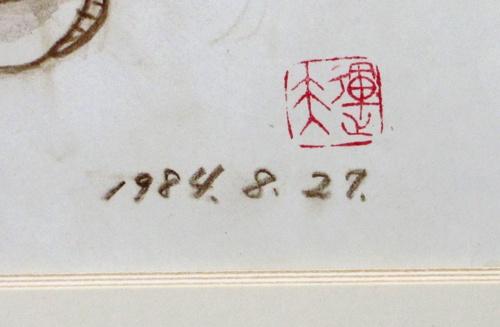 運
1984. 8. 27.